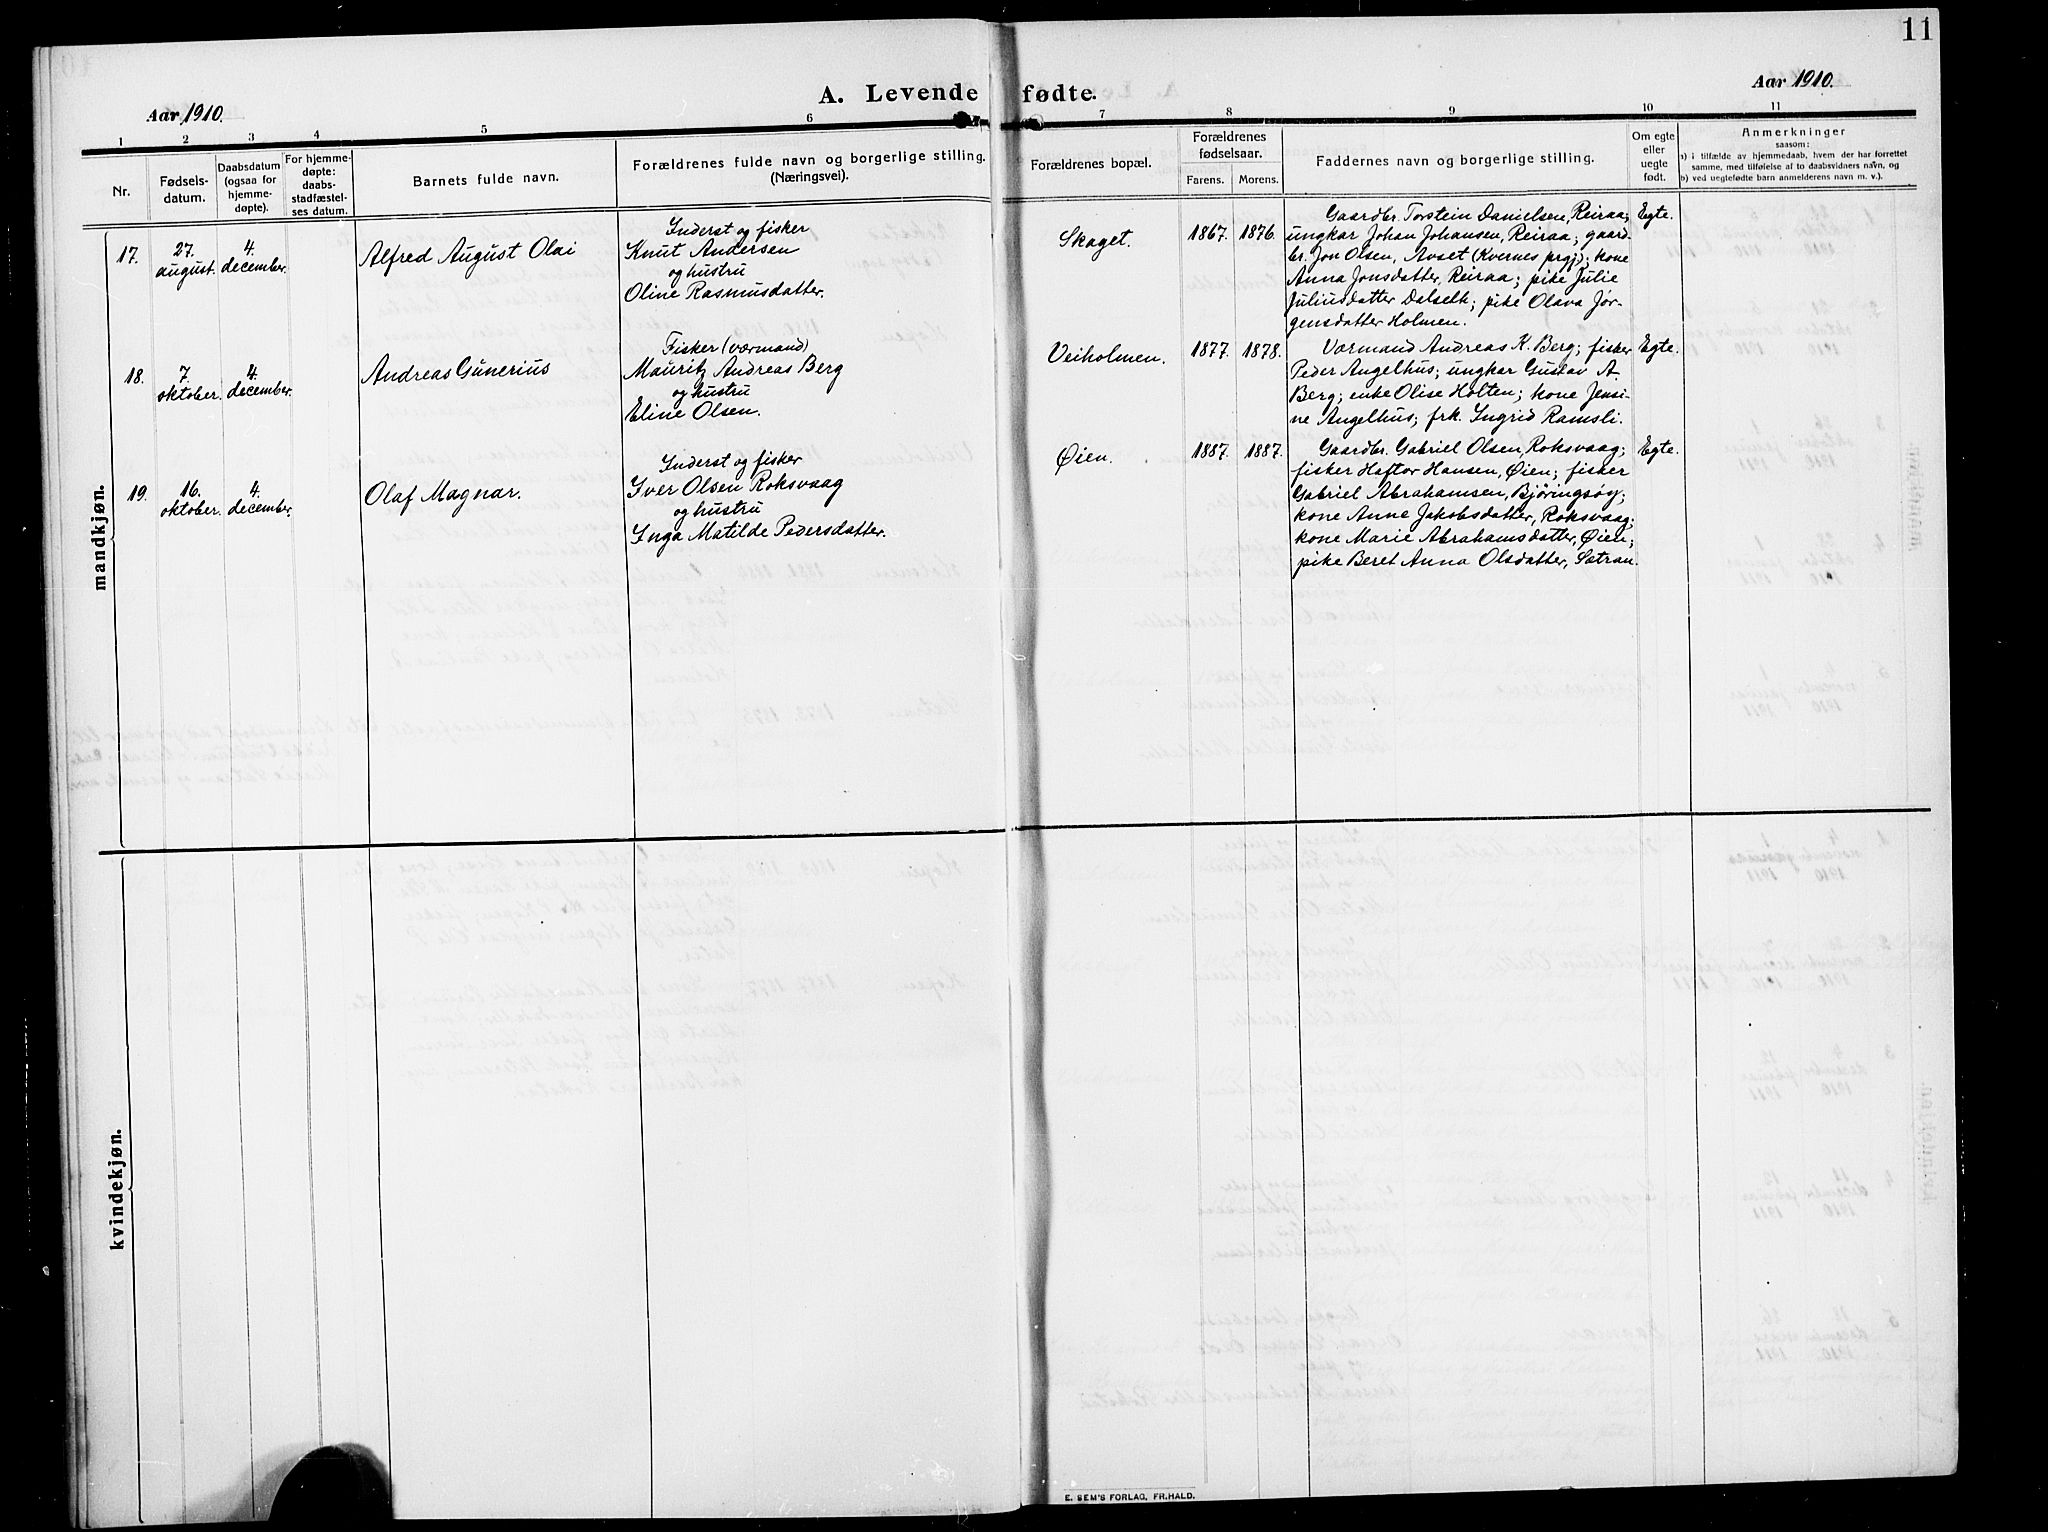 11
Aar 1910.
A. Levende fødte.
Aar 1910.
1 2 3 4 5 6 7 8 9 10 11
Nr.
Fødsels-
datum.
Daabsdatum
(ogsaa for
hjemme-
døpte).
For hjemme-
døpte:
daabs-
stadfæstel-
ses datum.
Barnets fulde navn.
Forældrenes fulde navn og borgerlige stilling.
(Næringsvei).
Forældrenes bopæl.
Forældrenes
fødselsaar.
Farens. Morens.
Faddernes navn og borgerlige stilling.
Om egte
eller
uegte
født.
Anmerkninger
saasom:
a) i tilfælde av hjemmedaab, hvem der har forrettet
samme, med tilføielse af to daabsvidners navn, og
b) ved uegtefødte barn anmelderens navn m. v.).
mandkjøn.
17.
27.
august.
4.
december.
Alfred August Olai
Inderst og fisker
Knut Andersen
og hustru
Oline Rasmusdatter.
Skaget.
1867. 1876.
Gaardbr. Torstein Danielsen, Reiraa;
ungkar Johan Johansen, Reiraa; gaard-
br. Jon Olsen, Avset (Kvernes prgj); kone
Anna Jonsdatter, Reiraa; pike Julie
Juliusdatter Dalselh; pike Olava Jør-
gensdatter Holmen.
Egte.
18.
7.
oktober.
4.
december.
Andreas Gunerius
Fisker (værmand)
Mauritz Andreas Berg
og hustru
Eline Olsen.
Veiholmen.
1877. 1878.
Værmand Andreas K. Berg; fisker
Peder Angelhus; ungkar Gustav A.
Berg; enke Olise Holten; kone Jensi-
ne Angelhus; frk. Ingrid Ramsli.
Egte.
19.
16.
oktober.
4.
december.
Olaf Magnar.
Inderst og fisker
Iver Olsen Roksvaag
og hustru
Inga Matilde Pedersdatter.
Øien.
1887. 1887.
Gaardbr. Gabriel Olsen, Roksvaag;
fisker Heftor Hansen, Øien; fisker
Gabriel Abrahamsen, Bjøringsøy;
kone Anne Jakobsdatter, Roksvaag;
kone Marie Abrahamsdatter, Øien;
pike Beret Anna Olsdatter, Sætran.
Egte.
kvindekjøn.
E. SEM'S FORLAG, FR.HALD.